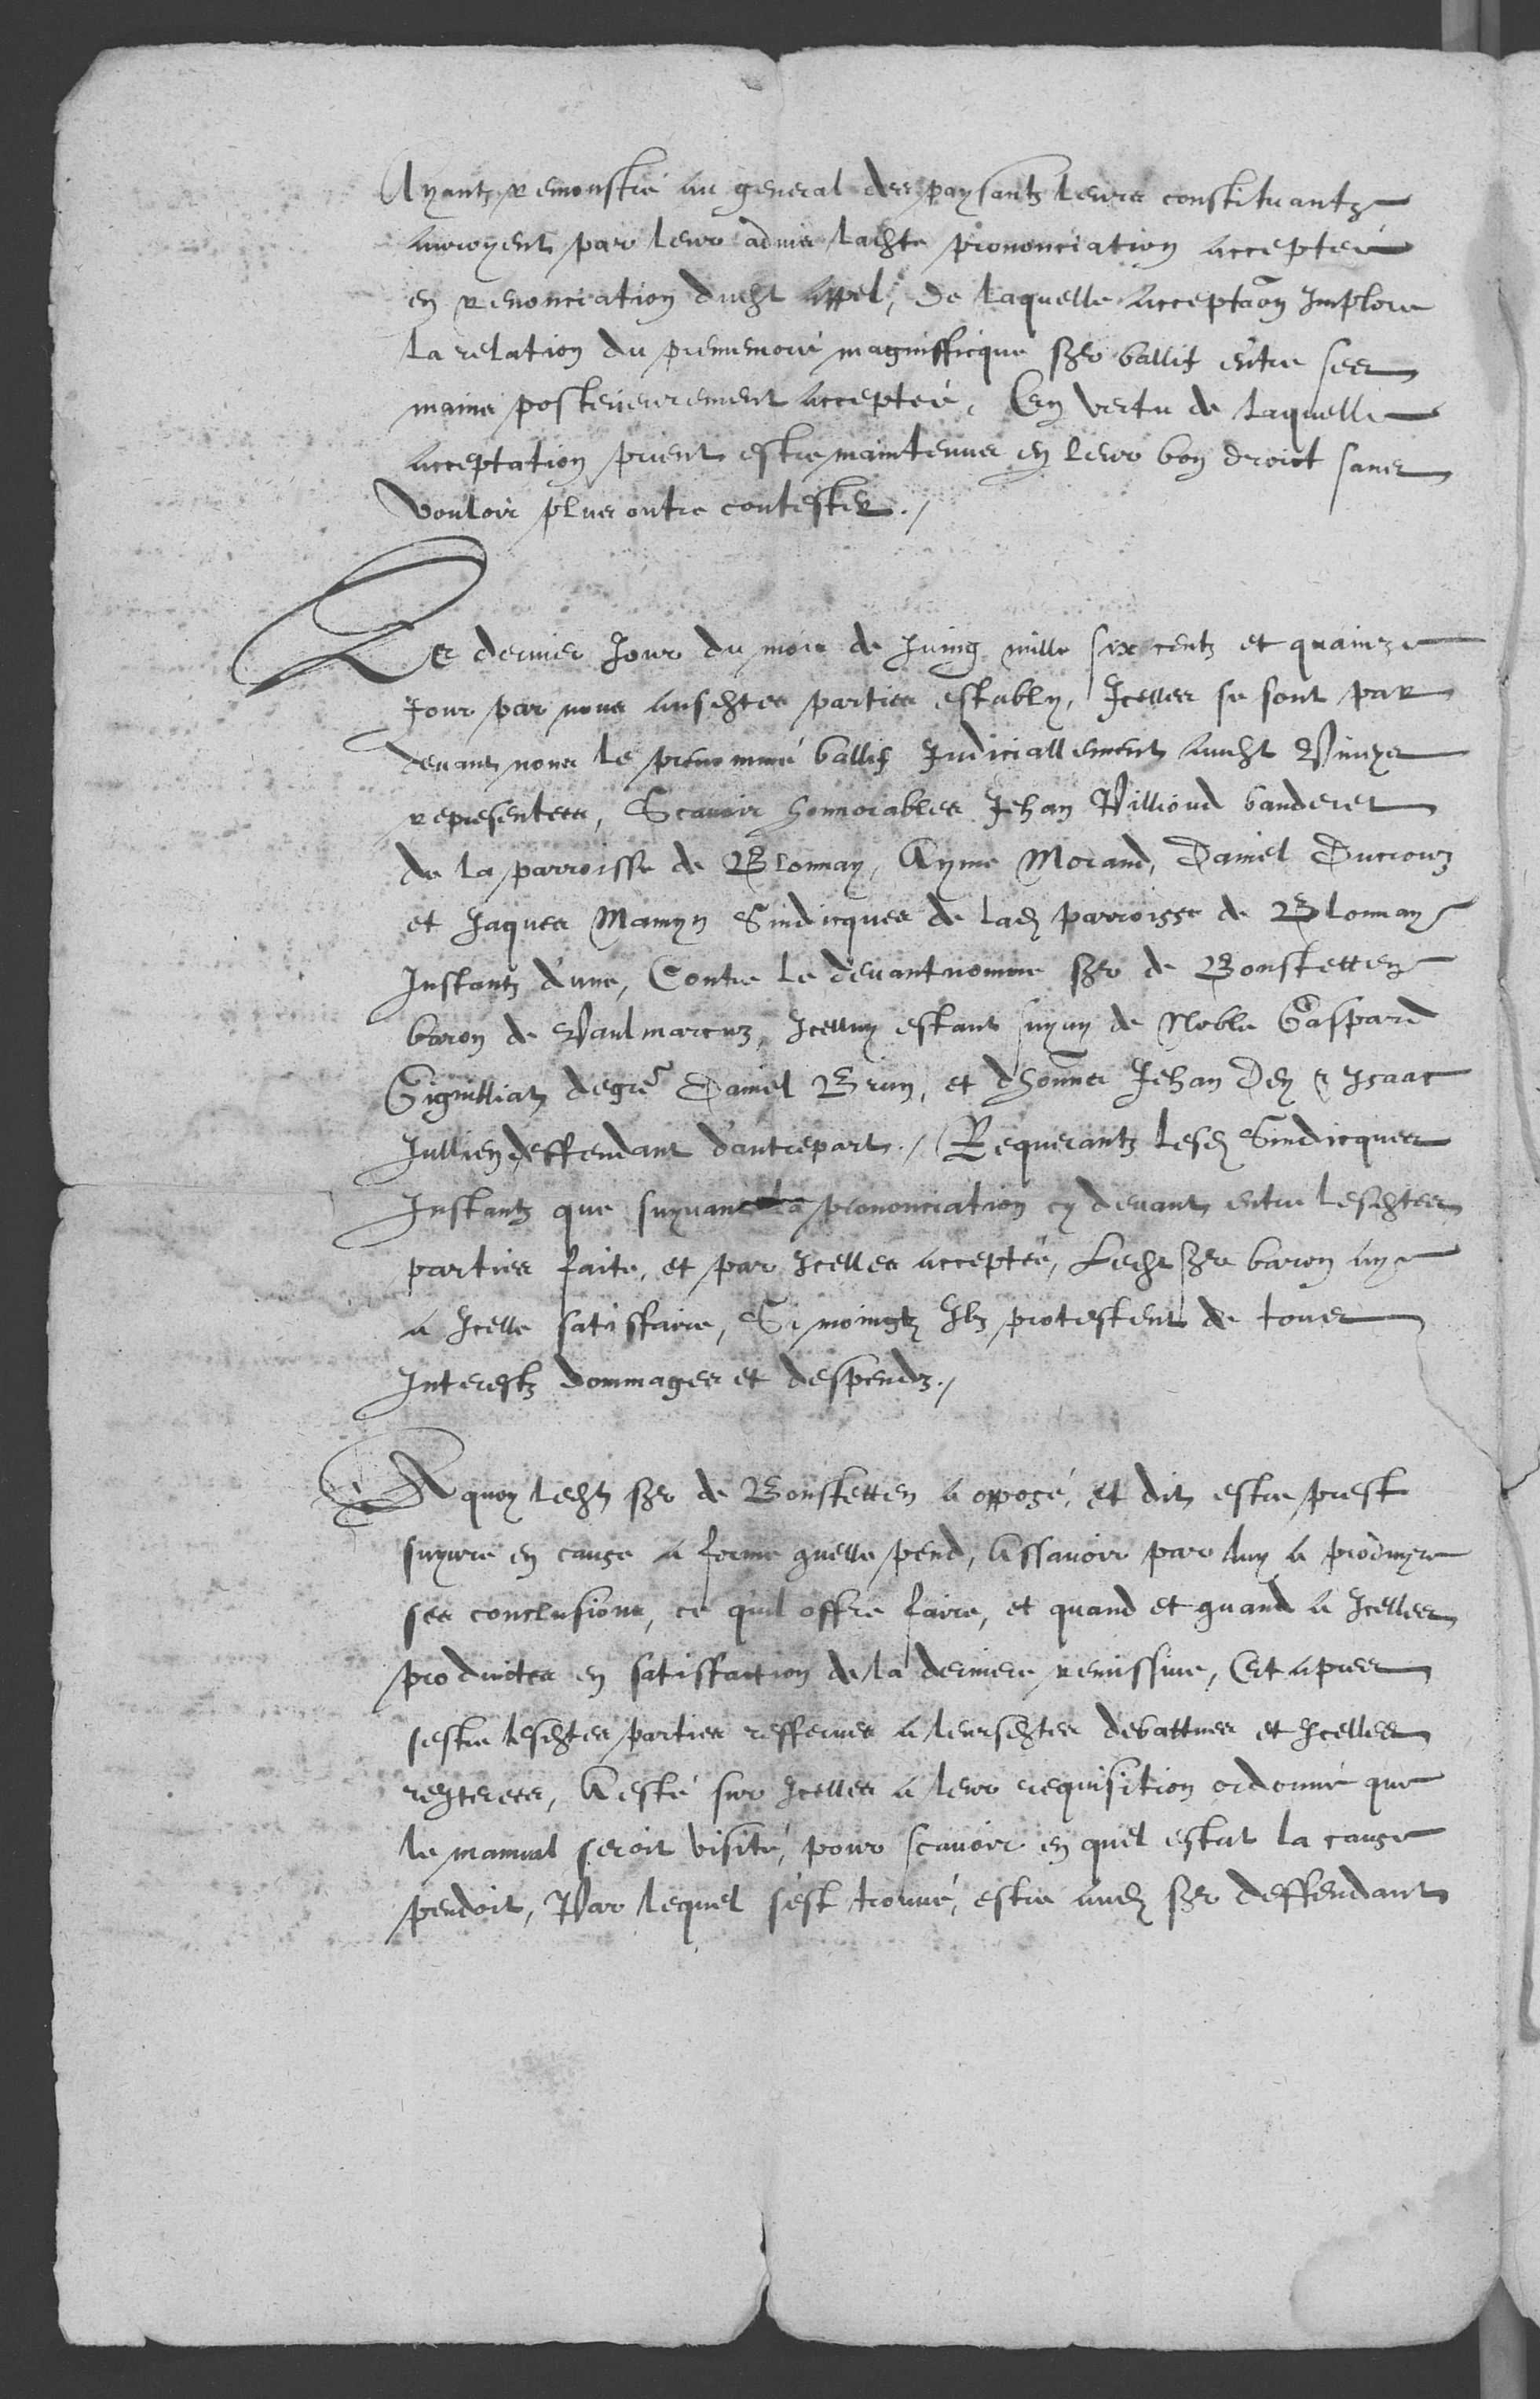 Ayantz remonstré au general des paysantz leurs constituantz
auroyent par leur advis ladte prononciation acceptée
en renonciation dudt appel, de laquelle acceptaõn Implore
la relation du prememoré magnifficque sgr ballif entre ses
mains posterieurement acceptée, En vertu de laquelle
acceptation prient estre maintenus en leur bon droict sans
vouloir plus outre contester./
Le dernier Jour du mois de Juing mille six centz et quainze
Jour par nous ausdtes parties estably, Icelles se sont par
devant nous le prenommé ballif Judiciallement audt
representees, Scavoir honnorables Jehan Villioud banderet
de la parroisse de Blonnay, Ayme Morand, Daniel Ducrouz
et Jaques Mamyn Sindicques de lad parroisse de Blonnay
Instantz d'une, Contre le devant nomme sgr de Bonstetten
baron de Vaulmarcuz, Icelluy estant suyvy de Noble Gaspard
Gignilliatz degre Daniel Brun, et dhonnes Jehan Dey & Isaac
Jullien deffendant d'autrepart./ Requerantz lesd Sindicques
Instantz que suyvant la prononciation cy devant entre lesdtes
parties faite, et par Icelles acceptée, Ledt sgr baron aye
a Icelle satisfaire, Si moingtz Ilz protestent de tous
Interestz dommages et despendz./
A quoy ledt sgr de Bonstetten a opposé, et dit estre prest
suyvre en cause a forme quelle pend, Assavoir par luy a produyre
ses conclusions, ce quil offre faire, et quand et quand a Icelles
produites en satisfaction de la derniere remissive, Et apres
sestre lesdtes parties refferues a leursdtes debattues et Icelles
reIterees, A esté sur Icelles a leur requisition ordonné que
le manual seroit visité, pour scavoir en quel estat la cause
pendoit, Par lequel s'est trouvé, estre aud sgr deffendant